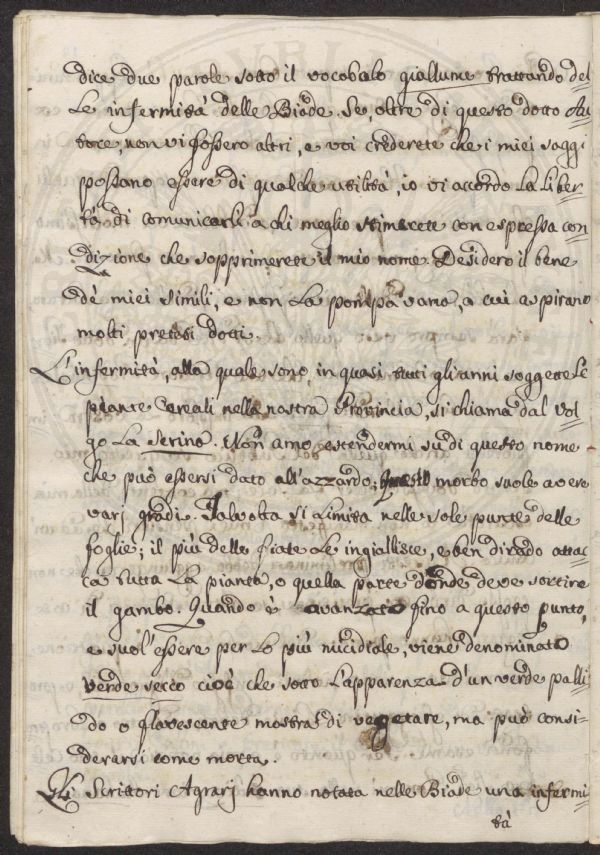 dice due parole sotto il vocobalo giallume trattando del
le infermità delle Biade. Se, oltre di questo dotto Au
tore, non vi fossero altri, e voi crederete che i miei saggi
possano essere di qualche utilità, io vi accordo la liber
tà di comunicarli a chi meglio stimarete con espressa con
dizione che sopprimerete il mio nome. Desidero il bene
de' miei simili, e non la pompa vana, a cui aspirano
molti pretesi dotti.
L'infermità, alla quale sono, in quasi tutti gli anni soggette le
piante Cereali nella nostra Provincia, si chiama dal vol
go la Serino. Non amo estendermi su di questo nome
che può essersi dato all'azzardo; questo morbo suole avere
varj gradi. Talvolta si limita nelle sole punte delle
foglie; il più delle fiate le ingiallisce, e ben di rado attac
ca tutta la pianta, o quella parte donde deve sortire
il gambo. Quando è avanzato fino a questo punto,
e suol'essere per lo più micidiale, viene denominato
verde secco cioè che sotto l'apparenza d'un verde palli
do o flavescente mostra di vegetare, ma può consi
derarsi come morta.
Gli Scrittori Agrarj hanno notata nelle Biade una infermi
tà